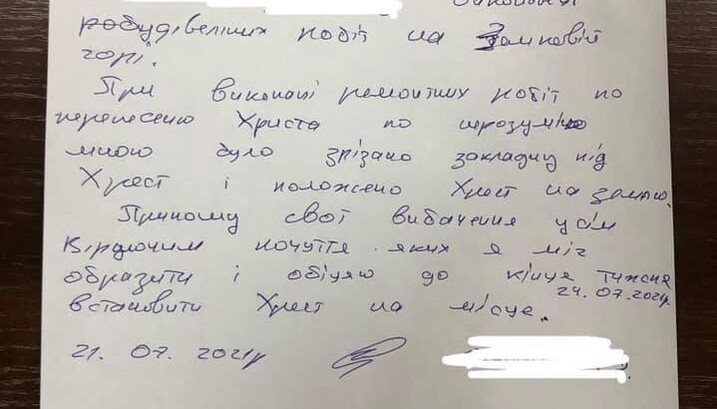 виконання
робудівеліних робіт на Замковій
горі.
При виконані ремонтних робіт по
перенесеню Христа по нерозуміню
мною було зрізано закладну під
Хрест і положено Хрест на землю.
Приношу свої вибачення усім
віруючим почуття яких я міг
образити і обіцяю до кінця тижня
24.07.2021р
встановити Хрест на місце.
21. 07. 2021р